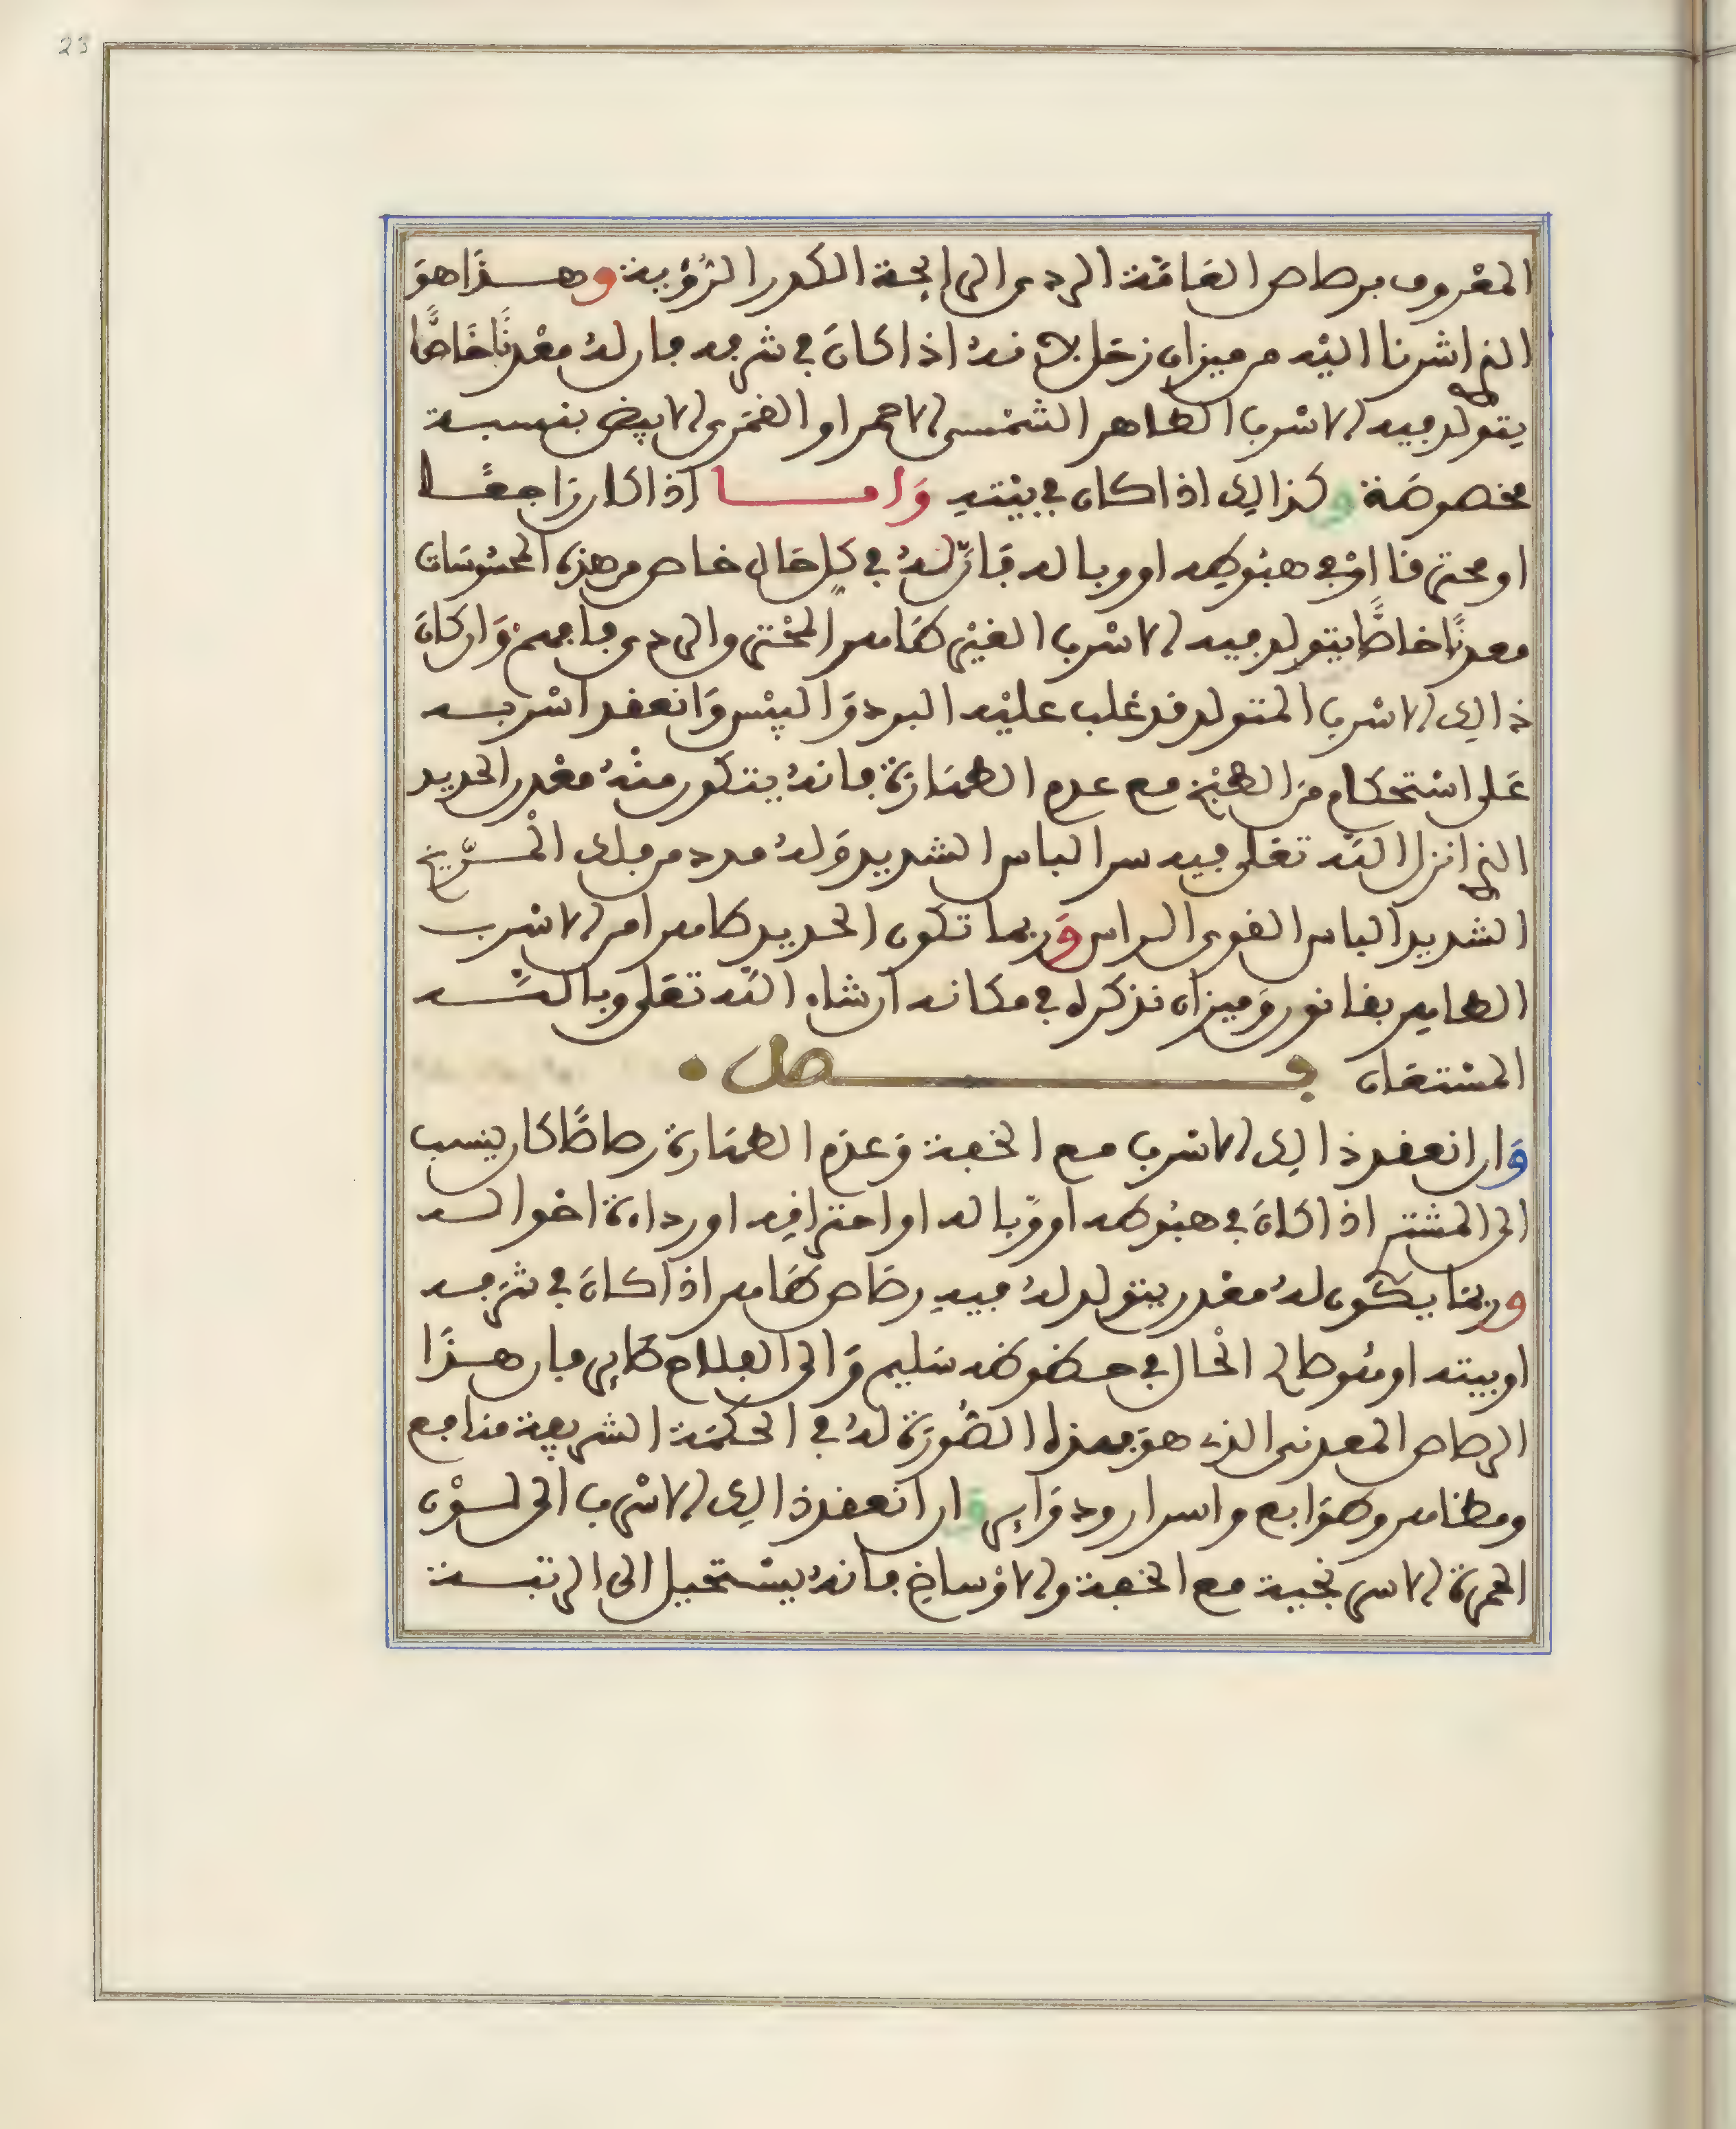 23
المعروف برصاص العامة الردي الرايحة الكدر الرؤية وهذا هو
الذي اشرنا اليه من ميزان زحل لانه اذا كان في شرفه فان له معدنا خاصا
يتولد فيه الاسرب الطاهر الشمسي الاحمر او القمري الابيض بنسبة
مخصوصة وكذالك اذا كان في بيته واما اذا كان راجعا
او محترقا او في هبوطه او وباله فان له في كل حال خاص من هذه المحسوسات
معدنا خاصا يتولد فيه الاسرب الغير طاهر المحترق والردي فافهم وان كان
ذالك الاسرب المتولد قد غلب عليه البرد واليبس وانعقد اسربه
على استحكام من الطبخ مع عدم الطهارة فانه يتكون منه معدن الحديد
الذي انزل الله تعلى فيه سر الباس الشديد وله مدد من فلك المريخ
الشديد الباس القوي المراس وربما تكون الحديد طاهرا من الاسرب
الطاهر بقانون وميزان نذكره في مكانه ان شاء الله تعلى وبالله
المستعان فصل
وان انعقد ذالك الاسرب مع الخفة وعدم الطهارة رصاصا كان ينسب
الى المشتري اذا كان في هبوطه او وباله او احتراقه او رداءة احواله
وربما يكون له معدن يتولد له فيه رصاص طاهر اذا كان في شرفه
او بيته او متوصالح الحال في حظوظه سليم والى الفلاح طاير فان هذا
الرصاص المعدني الذي هو بهذه الصورة له في الحكمة الشريفة منافع
ومظاهر وطوابع واسرار ودواير وان انعقد ذالك الاسرب الى لون
الحمرة الاسرنجية مع الخفة والاوساخ فانه يستحيل الى الرتبة